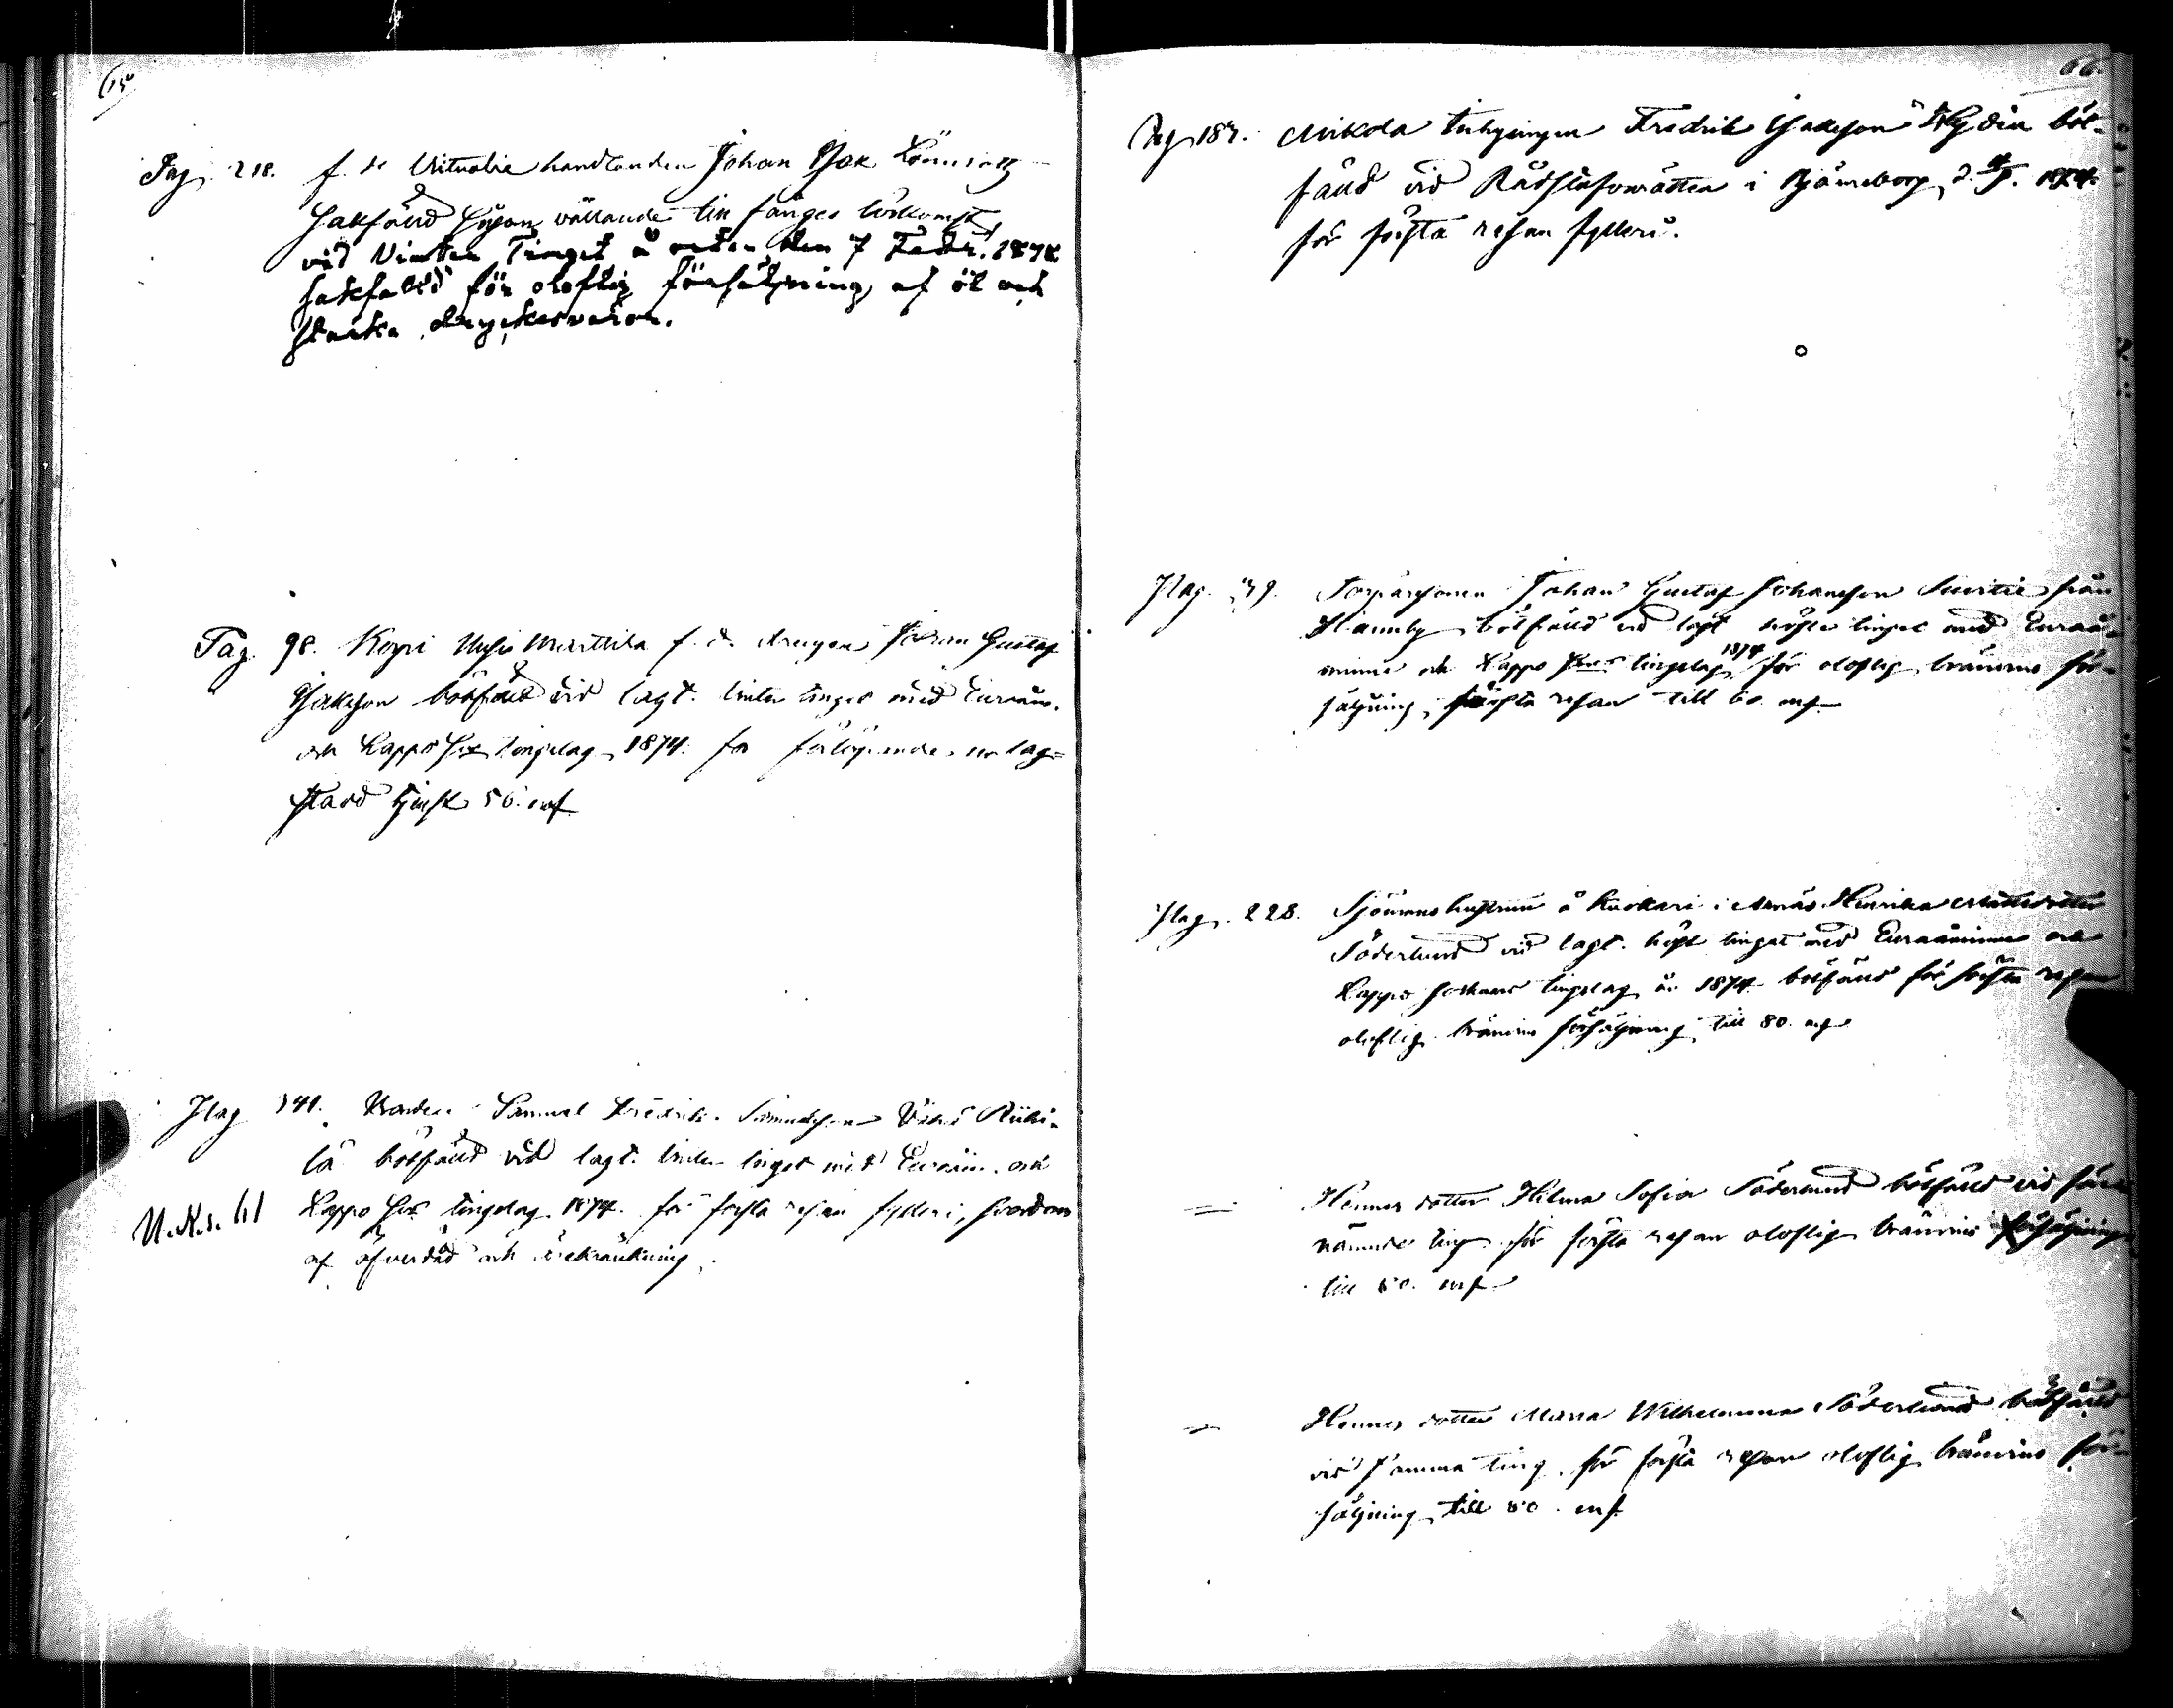 65
Pag. 218. f. d. Victualie handlanden Johan Isak Lönnroth
sakfälld såsom vållande till fånges lösskomst
vid Vinter Tinget å orten den 7 Febr. 1874
sakfälld för oloflig försäljning af öl och
starka dryckesvaror.
Pag. 98. Marttila f. d. drengen Johan Gustaf
Isaksson bötfälld vid lagt. Vinter tinget med Euraåm.
och Lappo tingslag 1874. för förlöpande ur lag-
stadd tjenst 56. mf
Pag 341. Samuel Fredrik Samuelsson Riihi-
lä bötfälld vid lagt. Vinter tinget med Euraåm. och
Lappo tingslag 1874. för första resan fylleri,
af öfverdåd och ärekränkning.
66.
Pag 187. Mikola Fredrik Isaksson böt-
fälld vid Rådstufvurätten i Björneborg d. 1874.
för första resan fylleri.
Pag. 39. Torparsonen Johan Gustaf Johansson från
Hannby bötfälld vid lagt höste tinget med Euraå-
minne och Lappo tingslag 1874 för oloflig bränvins för-
säljning första resan till 60. mf
Pag. 228. Sjömans hustrun å i Henrika Mattsdotter
Söderlund vid lagt. höst tinget med Euraåminne och
Lappo tingslag år 1874 bötfälld för första resan
oloflig bränvins försäljning till 80. mf
= Hennes dotter Hilma Sofia Söderlund bötfälld vid
nämnde ting för första resan oloflig bränvins försäljning
till 80. mf
= Hennes dotter Maria Wilhelmina Söderlund bötfälld
vid samma ting för första resan oloflig bränvins för-
säljning till 80. mf